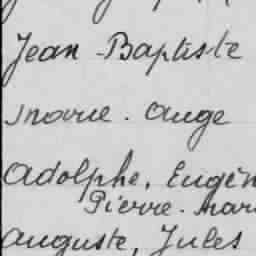 Jean-Baptiste
Marie. Ange
Adolphe, Eugèn
Pierre. Mari
Auguste, Jules